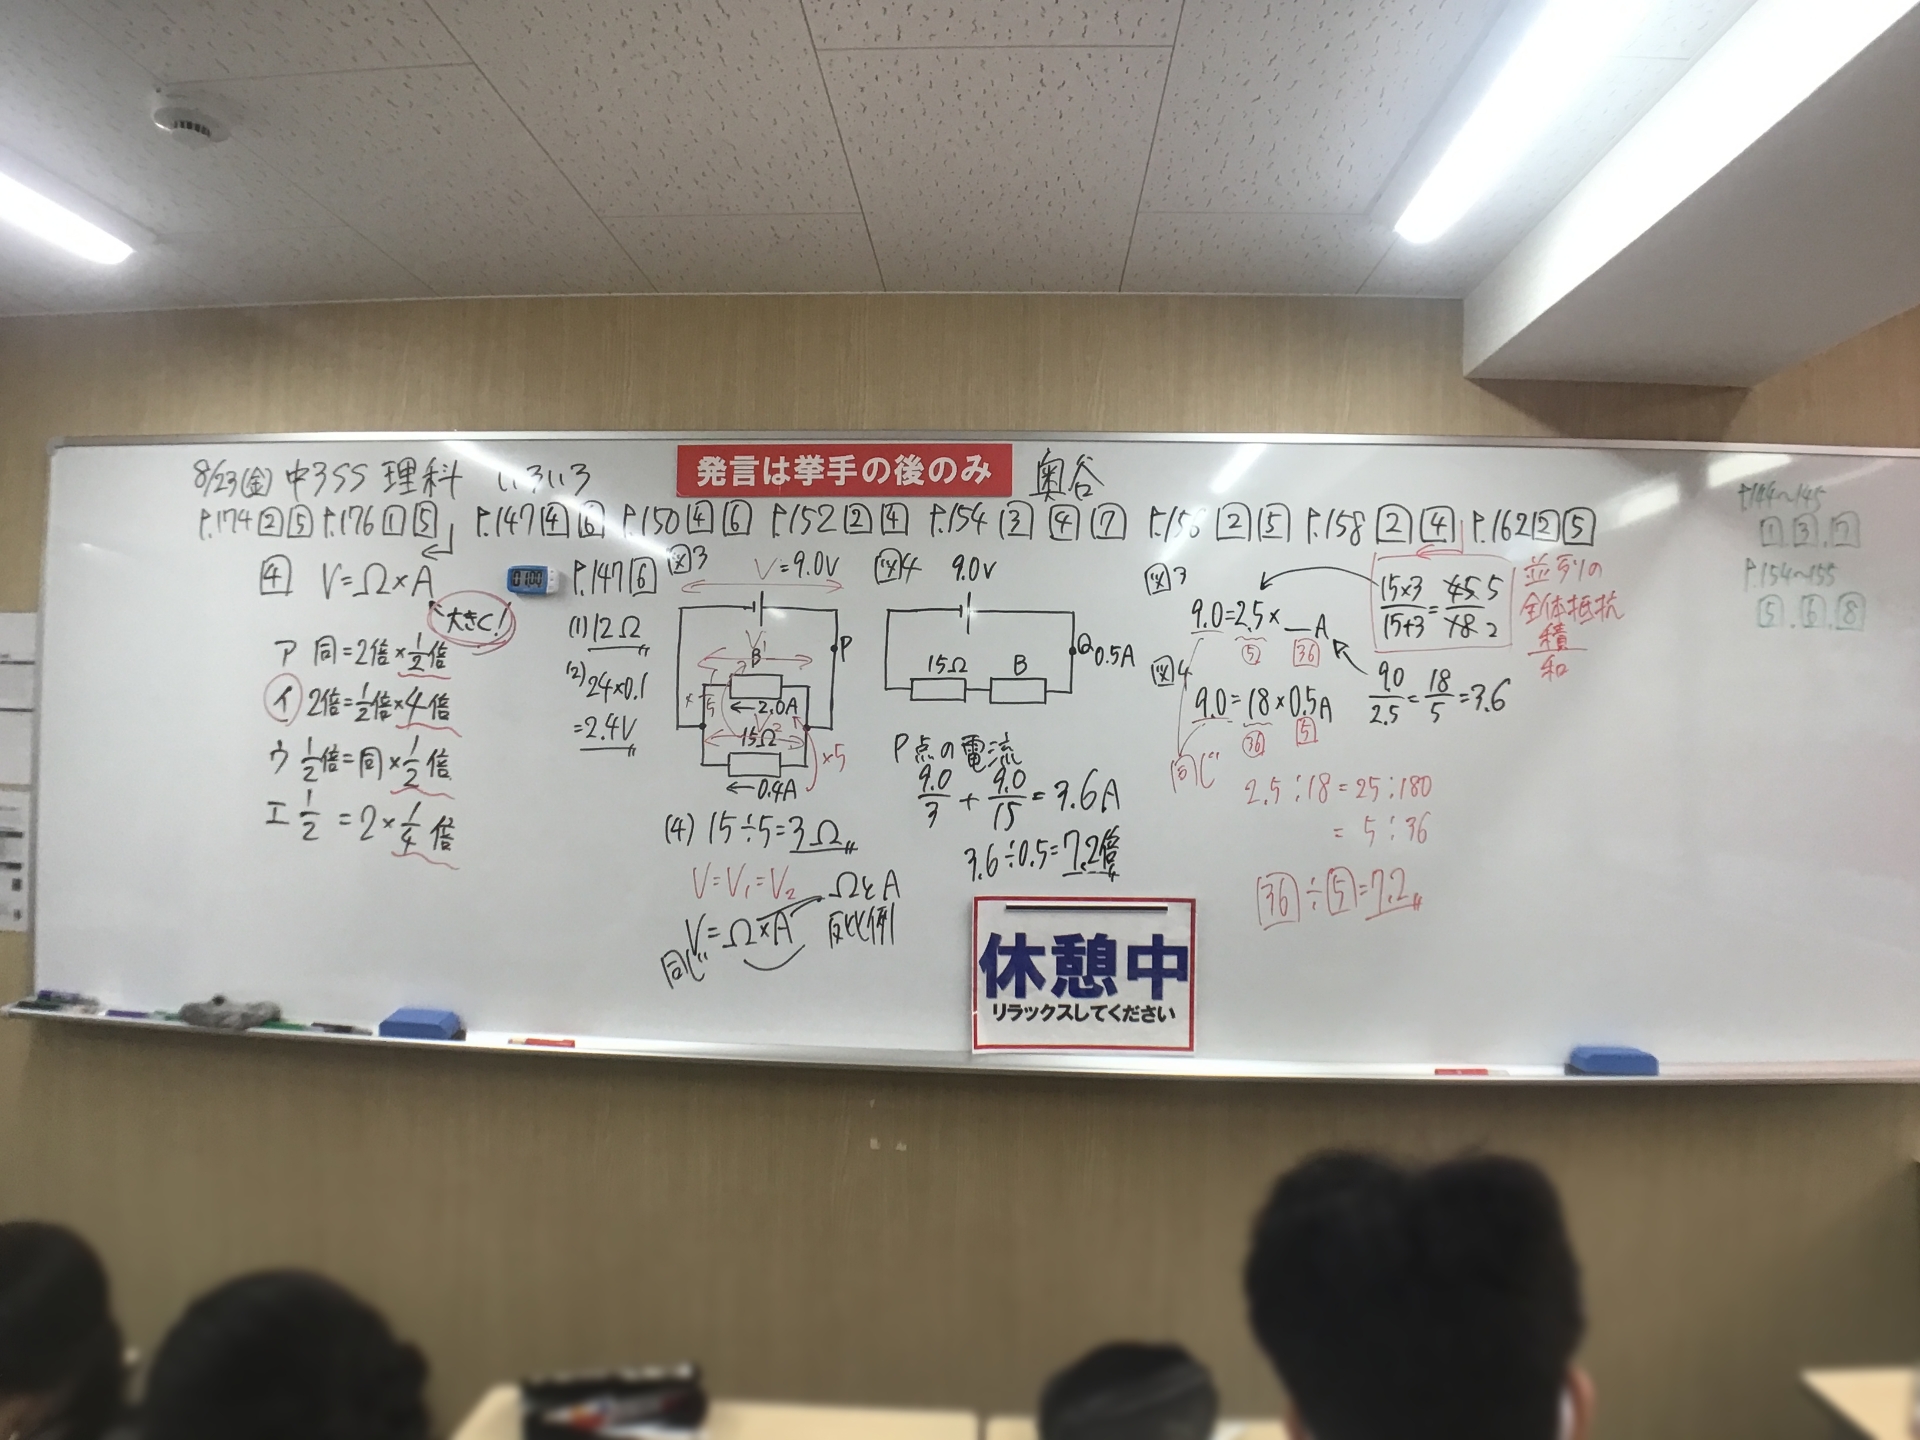 8/23(金) 中3SS 理科 いろいろ
発言は挙手の後のみ
奥谷
P.174 2 5 P.176 1 5 P.147 4 6 P.150 4 6 P.152 2 4 P.154 3 4 7 P.156 2 5 P.158 2 4 P.162 2 5
4 V=Ω×A
大きく!
ア 同=2倍×1/2倍
イ 2倍=1/2倍×4倍
ウ 1/2倍=同×1/2倍
エ 1/2=2×1/4倍
01:00
P.147 6
(1) 12Ω
(2) 24×0.1
=2.4V
図3 V=9.0V
P
V1
B
←2.0A
V2
15Ω
←0.4A
×5
(4) 15÷5=3Ω
V=V1=V2
V=Ω×A
同じ
ΩとA
反比例
図4 9.0V
Q 0.5A
15Ω B
P点の電流
9.0/3 + 9.0/15 = 3.6A
3.6÷0.5=7.2倍
休憩中
リラックスしてください
図3
9.0=2.5×__A
5 36
図4
9.0=18×0.5A
36 5
同じ
15×3/15+3=45/18 5/2
並列の
全体抵抗
積
和
9.0/2.5=18/5=3.6
2.5:18=25:180
=5:36
36÷5=7.2
P.144~145
1.3.7
P.154~155
5.6.8